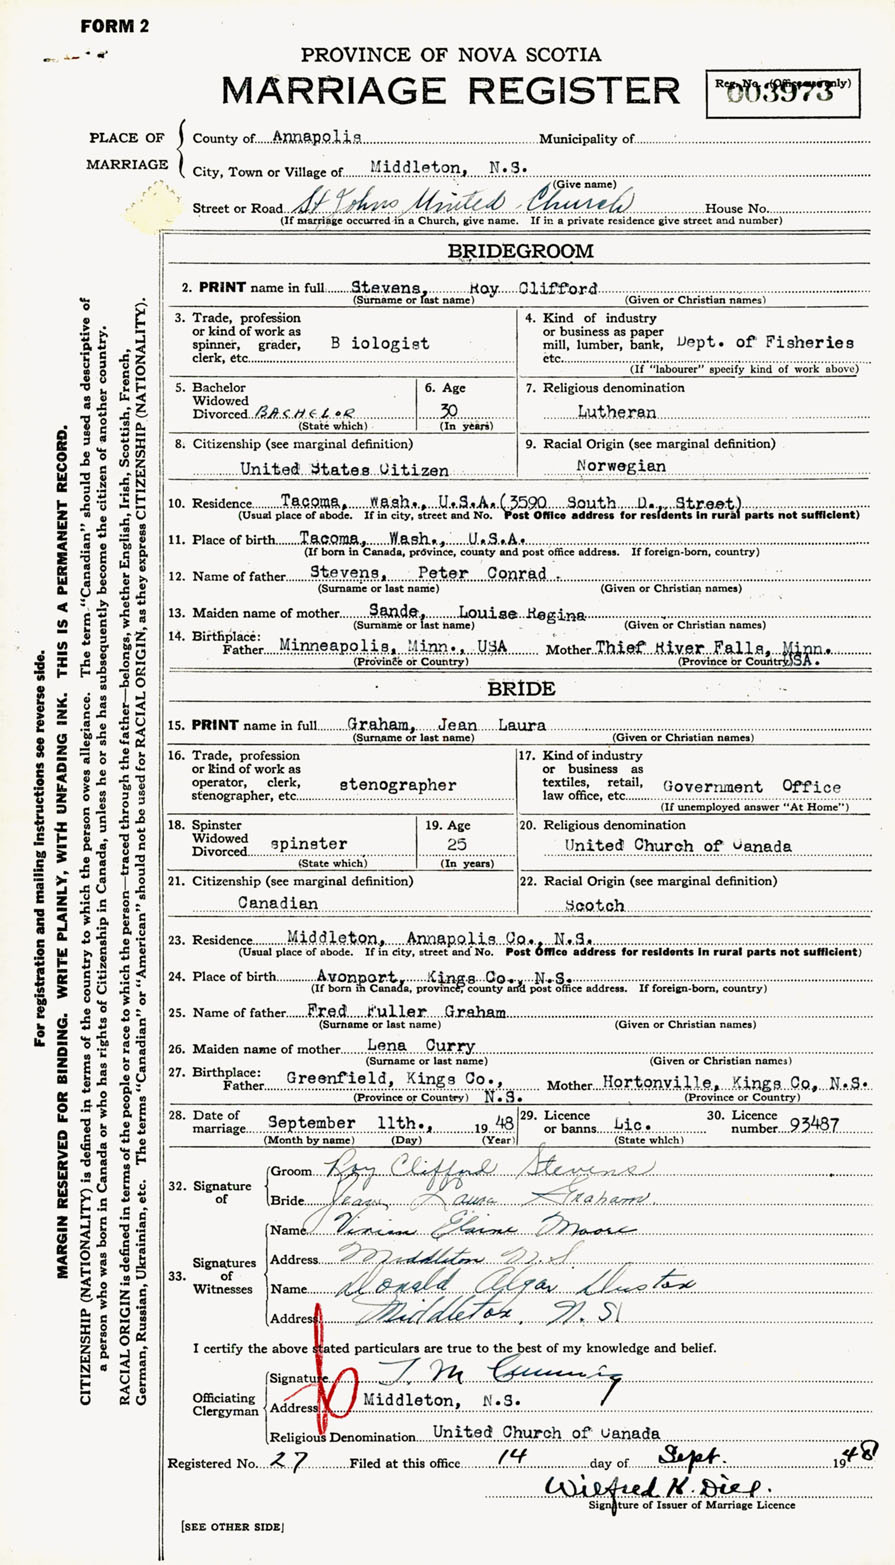 FORM 2
PROVINCE OF NOVA SCOTIA
MARRIAGE REGISTER
Reg. No. (Office use only)
003973
PLACE OF MARRIAGE
County of Annapolis Municipality of
City, Town or Village of Middleton, N.S.
(Give name)
Street or Road St Johns United Church House No.
(If marriage occurred in a Church, give name. If in a private residence give street and number)
BRIDEGROOM
2. PRINT name in full Stevens, Roy Clifford
(Surname or last name) (Given or Christian names)
3. Trade, profession or kind of work as spinner, grader, clerk, etc. B iologist
4. Kind of industry or business as paper mill, lumber, bank, etc. Dept. of Fisheries
(If "labourer" specify kind of work above)
5. Bachelor Widowed Divorced BACHELOR
(State which)
6. Age 30
(In years)
7. Religious denomination
Lutheran
8. Citizenship (see marginal definition)
United States Citizen
9. Racial Origin (see marginal definition)
Norwegian
10. Residence Tacoma, Wash., U.S.A.(3590 South D., Street)
(Usual place of abode. If in city, street and No. Post Office address for residents in rural parts not sufficient)
11. Place of birth Tacoma, Wash., U.S.A.
(If born in Canada, province, county and post office address. If foreign-born, country)
12. Name of father Stevens, Peter Conrad .
(Surname or last name) (Given or Christian names)
13. Maiden name of mother Sande, Louise Regina
(Surname or last name) (Given or Christian names)
14. Birthplace:
Father Minneapolis, Minn., USA Mother Thief River Falls, Minn.
(Province or Country) (Province or Country) USA.
BRIDE
15. PRINT name in full Graham, Jean Laura
(Surname or last name) (Given or Christian names)
16. Trade, profession or kind of work as operator, clerk, stenographer, etc. stenographer
17. Kind of industry or business as textiles, retail, law office, etc. Government Office
(If unemployed answer "At Home")
18. Spinster Widowed Divorced spinster
(State which)
19. Age
25
(In years)
20. Religious denomination
United Church of Canada
21. Citizenship (see marginal definition)
Canadian
22. Racial Origin (see marginal definition)
Scotch
23. Residence Middleton, Annapolis Co., N.S.
(Usual place of abode. If in city, street and No. Post Office address for residents in rural parts not sufficient)
24. Place of birth Avonport, Kings Co., N.S.
(If born in Canada, province, county and post office address. If foreign-born, country)
25. Name of father Fred Fuller Graham
(Surname or last name) (Given or Christian names)
26. Maiden name of mother Lena Curry
(Surname or last name) (Given or Christian names)
27. Birthplace:
Father Greenfield, Kings Co., N.S. Mother Hortonville, Kings Co, N.S.
(Province or Country) (Province or Country)
28. Date of marriage September 11th., 1948
(Month by name) (Day) (Year)
29. Licence or banns Lic.
(State which)
30. Licence number 93487
32. Signature of
Groom Roy Clifford Stevens
Bride Jean Laura Graham
33. Signatures of Witnesses
Name Vivian Elaine Moore
Address Middleton N.S.
Name Donald Algar
Address Middleton, N.S.
I certify the above stated particulars are true to the best of my knowledge and belief.
Officiating Clergyman
Signature J. M.
Address Middleton, N.S.
Religious Denomination United Church of Canada
Registered No. 27 Filed at this office 14 day of Sept. 1948
Wilfred K. Diel.
Signature of Issuer of Marriage Licence
[SEE OTHER SIDE]
For registration and mailing instructions see reverse side.
MARGIN RESERVED FOR BINDING. WRITE PLAINLY, WITH UNFADING INK. THIS IS A PERMANENT RECORD.
CITIZENSHIP (NATIONALITY) is defined in terms of the country to which the person owes allegiance. The term "Canadian" should be used as descriptive of
a person who was born in Canada or who has rights of Citizenship in Canada, unless he or she has subsequently become the citizen of another country.
RACIAL ORIGIN is defined in terms of the people or race to which the person—traced through the father—belongs, whether English, Irish, Scottish, French,
German, Russian, Ukrainian, etc. The terms "Canadian" or "American" should not be used for RACIAL ORIGIN, as they express CITIZENSHIP (NATIONALITY).